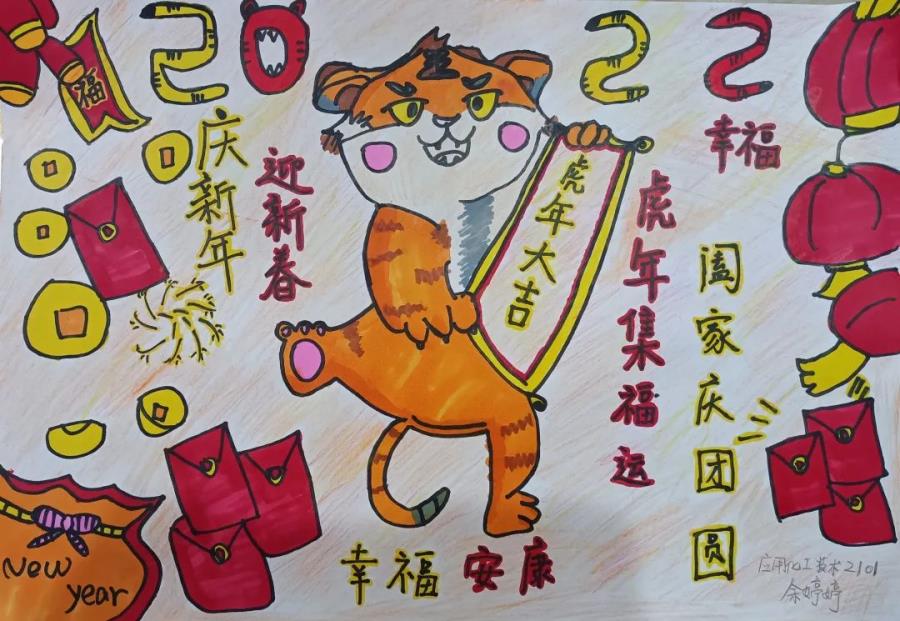 2022
福
庆新年
迎新春
虎年大吉
虎年集福运
幸福
阖家庆团圆
幸福安康
New
year
应用化工技术2101
余婷婷